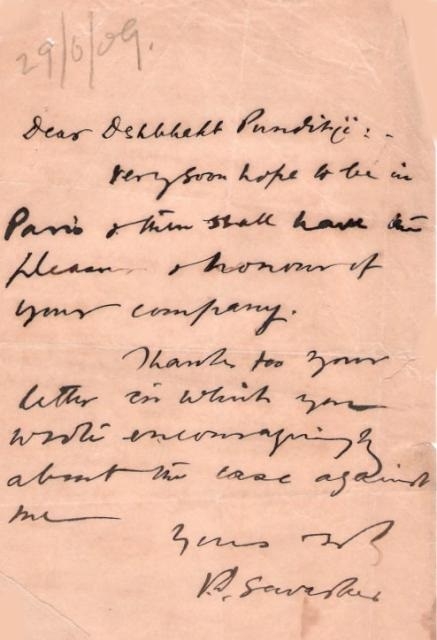 29/6/09.
Dear Deshbhakt Punditji:-
very soon hope to be in
Paris & then shall have the
pleasure & honour of
your company.
Thanks too your
letter in which you
wrote encouragingly
about the case against
me
Yours
V.D. Savarkar